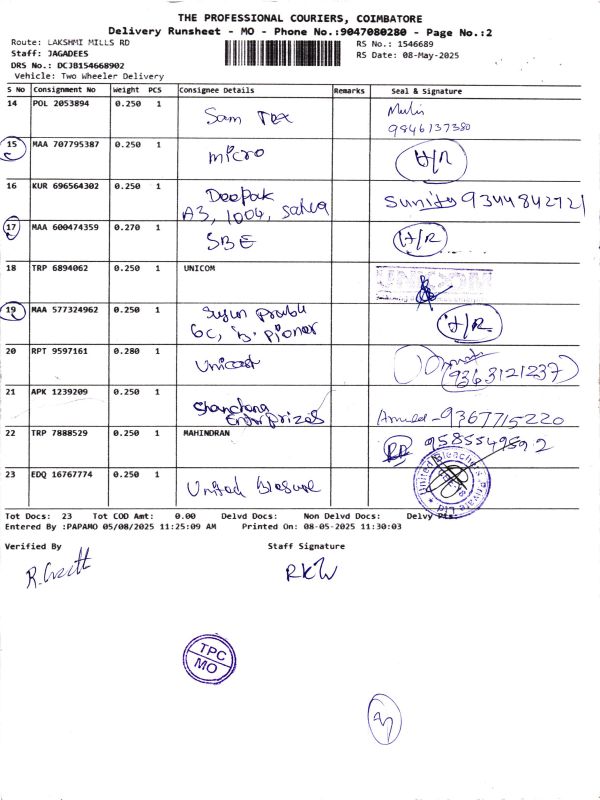 THE PROFESSIONAL COURIERS, COIMBATORE
Delivery Runsheet - MO - Phone No.:9047080280 - Page No.:2
Route: LAKSHMI MILLS RD
RS No.: 1546689
Staff: JAGADEES
RS Date: 08-May-2025
DRS No.: DCJB154668902
Vehicle: Two Wheeler Delivery
S No Consignment No Weight PCS Consignee Details Remarks Seal & Signature
14 POL 2053894 0.250 1 Sam Tex
9846137380
15 MAA 707795387 0.250 1 micro H/R
16 KUR 696564302 0.250 1 Deepak
A3, 1004,
17 MAA 600474359 0.270 1 SBE H/R
18 TRP 6894062 0.250 1 UNICOM
UNICOM
19 MAA 577324962 0.250 1 H/R
6C,
20 RPT 9597161 0.280 1 Unicast
9363121237
21 APK 1239209 0.250 1
9367715220
22 TRP 7888529 0.250 1 MAHINDRAN
23 EDQ 16767774 0.250 1 United
United Bleachers Private Ltd
Tot Docs: 23 Tot COD Amt: 0.00 Delvd Docs: Non Delvd Docs: Delvy Pts:
Entered By :PAPAMO 05/08/2025 11:25:09 AM Printed On: 08-05-2025 11:30:03
Verified By Staff Signature
TPC
MO